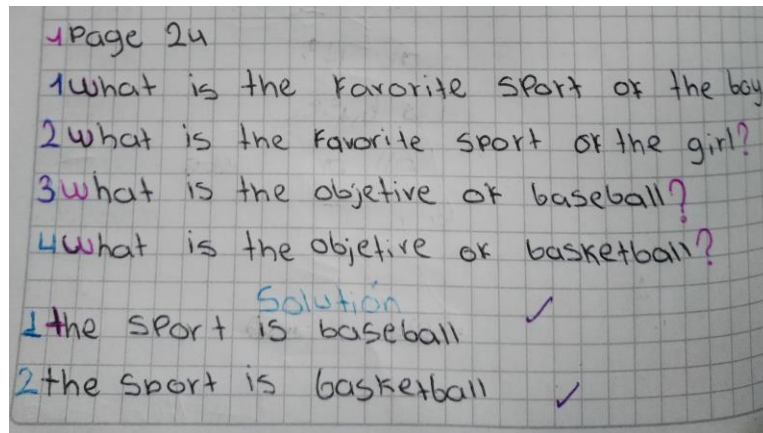 1 Page 24
1 What is the Favorite Sport of the boy
2 What is the Favorite sport of the girl?
3 What is the objetive of baseball?
4 What is the objetive of basketball?
Solutión
1 the sport is baseball
2 the sport is basketball